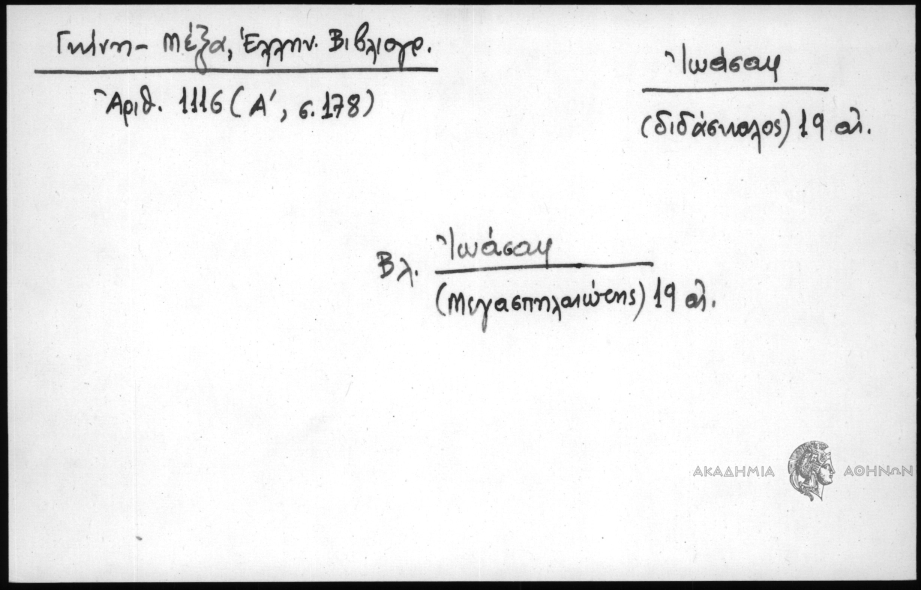 Γκίνη - Μέξα, Ἑλλην. Βιβλιογρ.
Ἀριθ. 1116 (Α', σ. 178)
Ἰωάσαφ
(διδάσκαλος) 19 αἰ.
Βλ. Ἰωάσαφ
(Μεγασπηλαιώτης) 19 αἰ.
ΑΚΑΔΗΜΙΑ ΑΘΗΝΩΝ